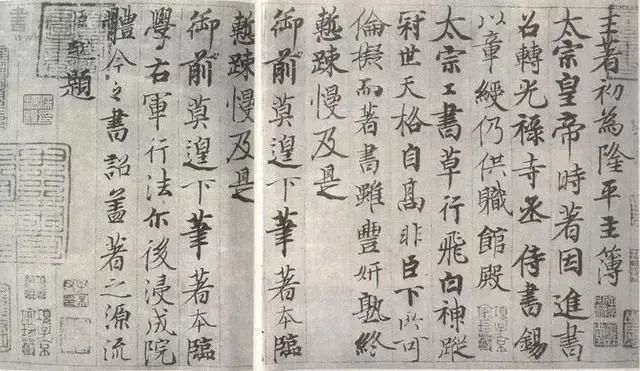 王著初為隆平主簿
太宗皇帝時著因進書
召轉光祿寺丞侍書錫
以章綬仍供職館殿
太宗工書草行飛白神蹤
冠世天格自高非臣下所可
倫擬而著書雖豐妍熟終
慙疎慢及是
御前莫遑下筆著本臨
慙疎慢及是
御前莫遑下筆著本臨
學右軍行法尔後浸成院
體今之書詔盖著之源流
越題